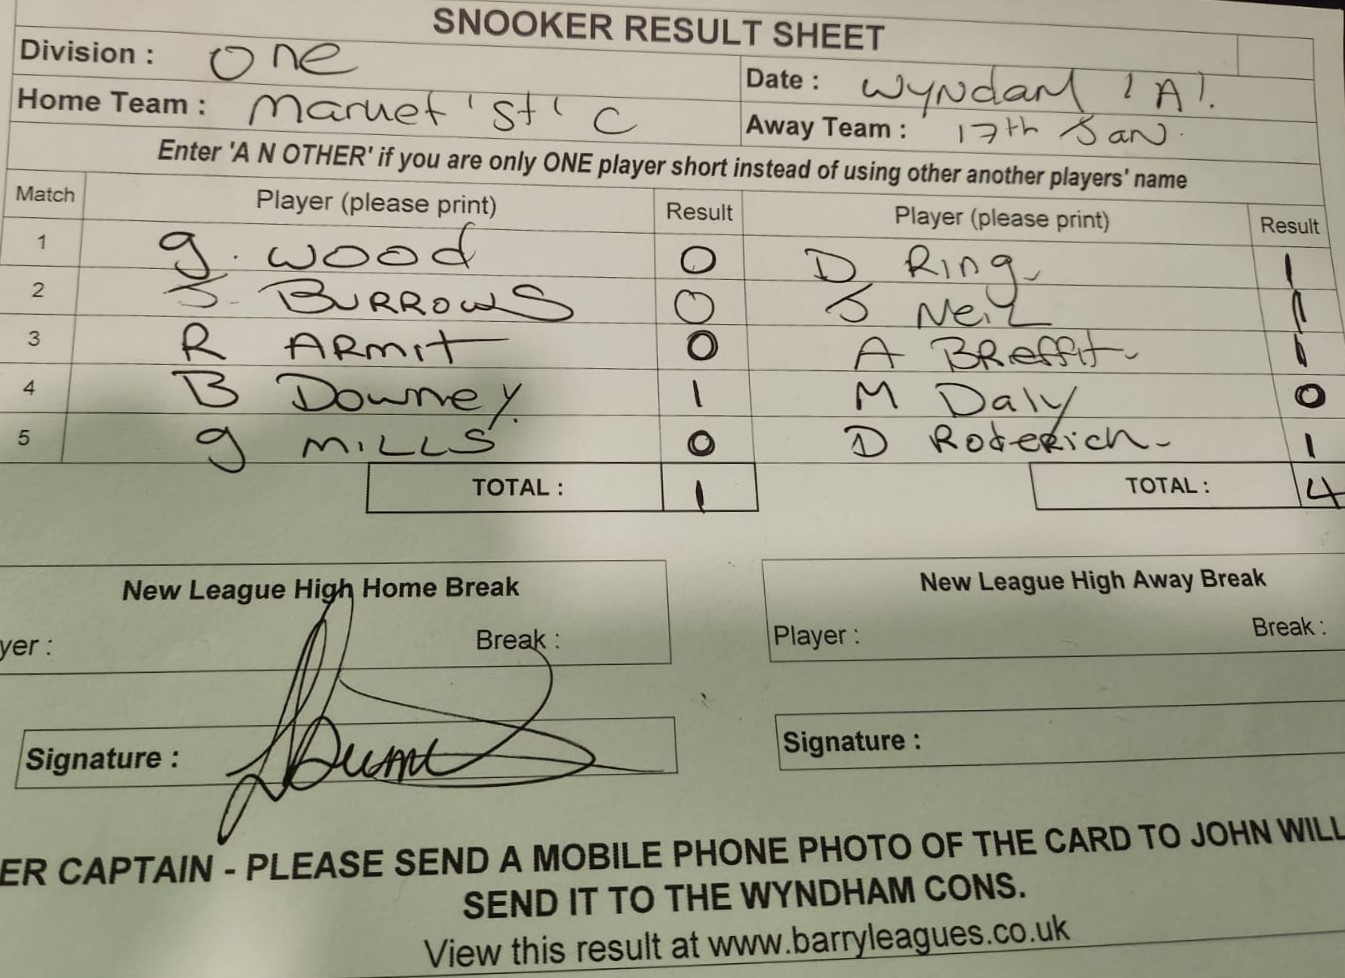 SNOOKER RESULT SHEET
Division : One
Date : Wyndam 'A'.
Home Team : Maruet 'st' C
Away Team : 17th Jan.
Enter 'A N OTHER' if you are only ONE player short instead of using other another players' name
Match Player (please print) Result Player (please print) Result
1 g. wood 0 D Ring 1
2 S. BURROWS 0 S Neil 1
3 R ARMIT 0 A BReffit 1
4 B Downey. 1 M Daly 0
5 g MILLS 0 D Roderich 1
TOTAL : 1 TOTAL : 4
New League High Home Break New League High Away Break
yer : Break : Player : Break :
Signature : Signature :
ER CAPTAIN - PLEASE SEND A MOBILE PHONE PHOTO OF THE CARD TO JOHN WILL
SEND IT TO THE WYNDHAM CONS.
View this result at www.barryleagues.co.uk